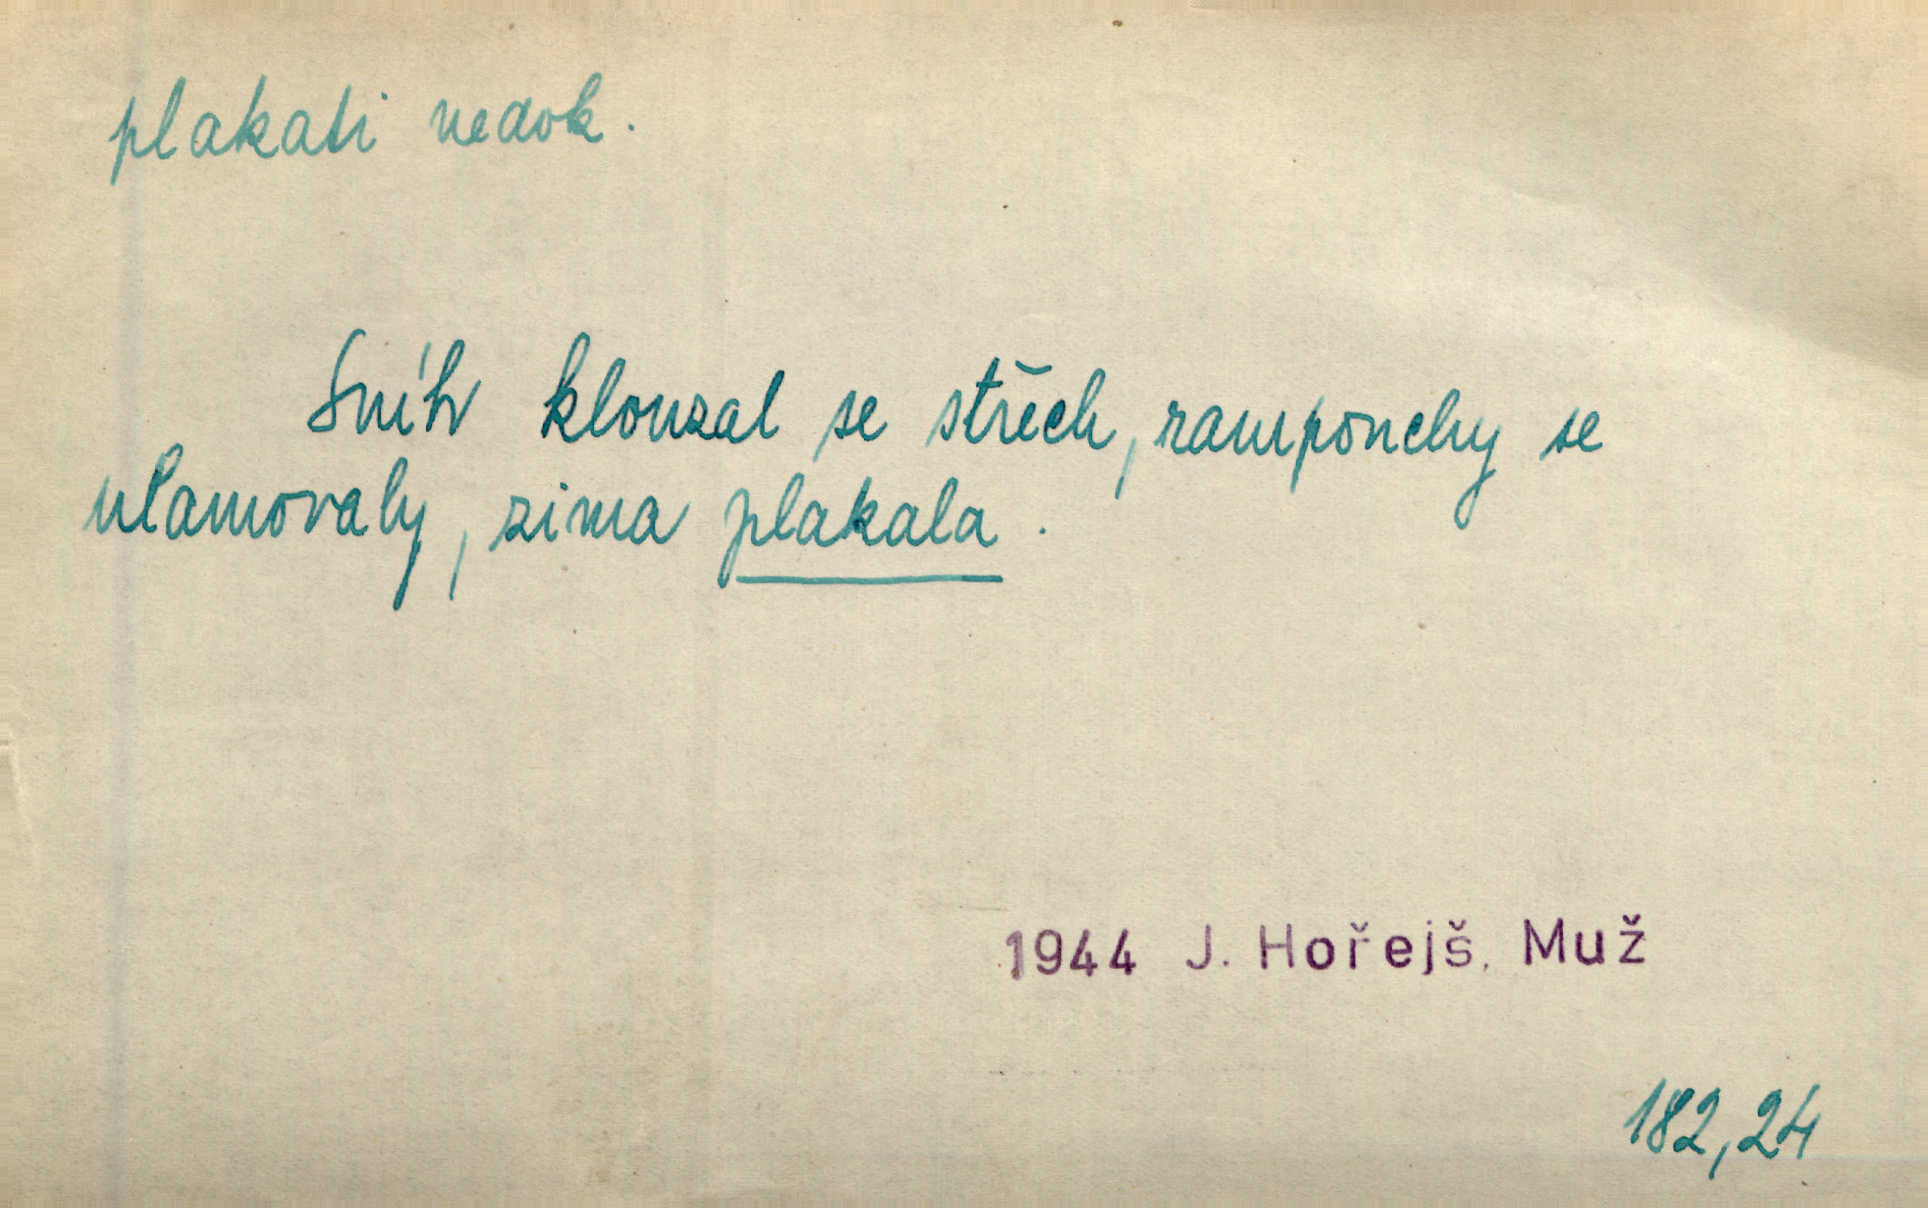 plakati nedok.
Sníh klouzal se střech, rampouchy se
ulamovaly, zima plakala.
1944 J. Hořejš. Muž
182,24